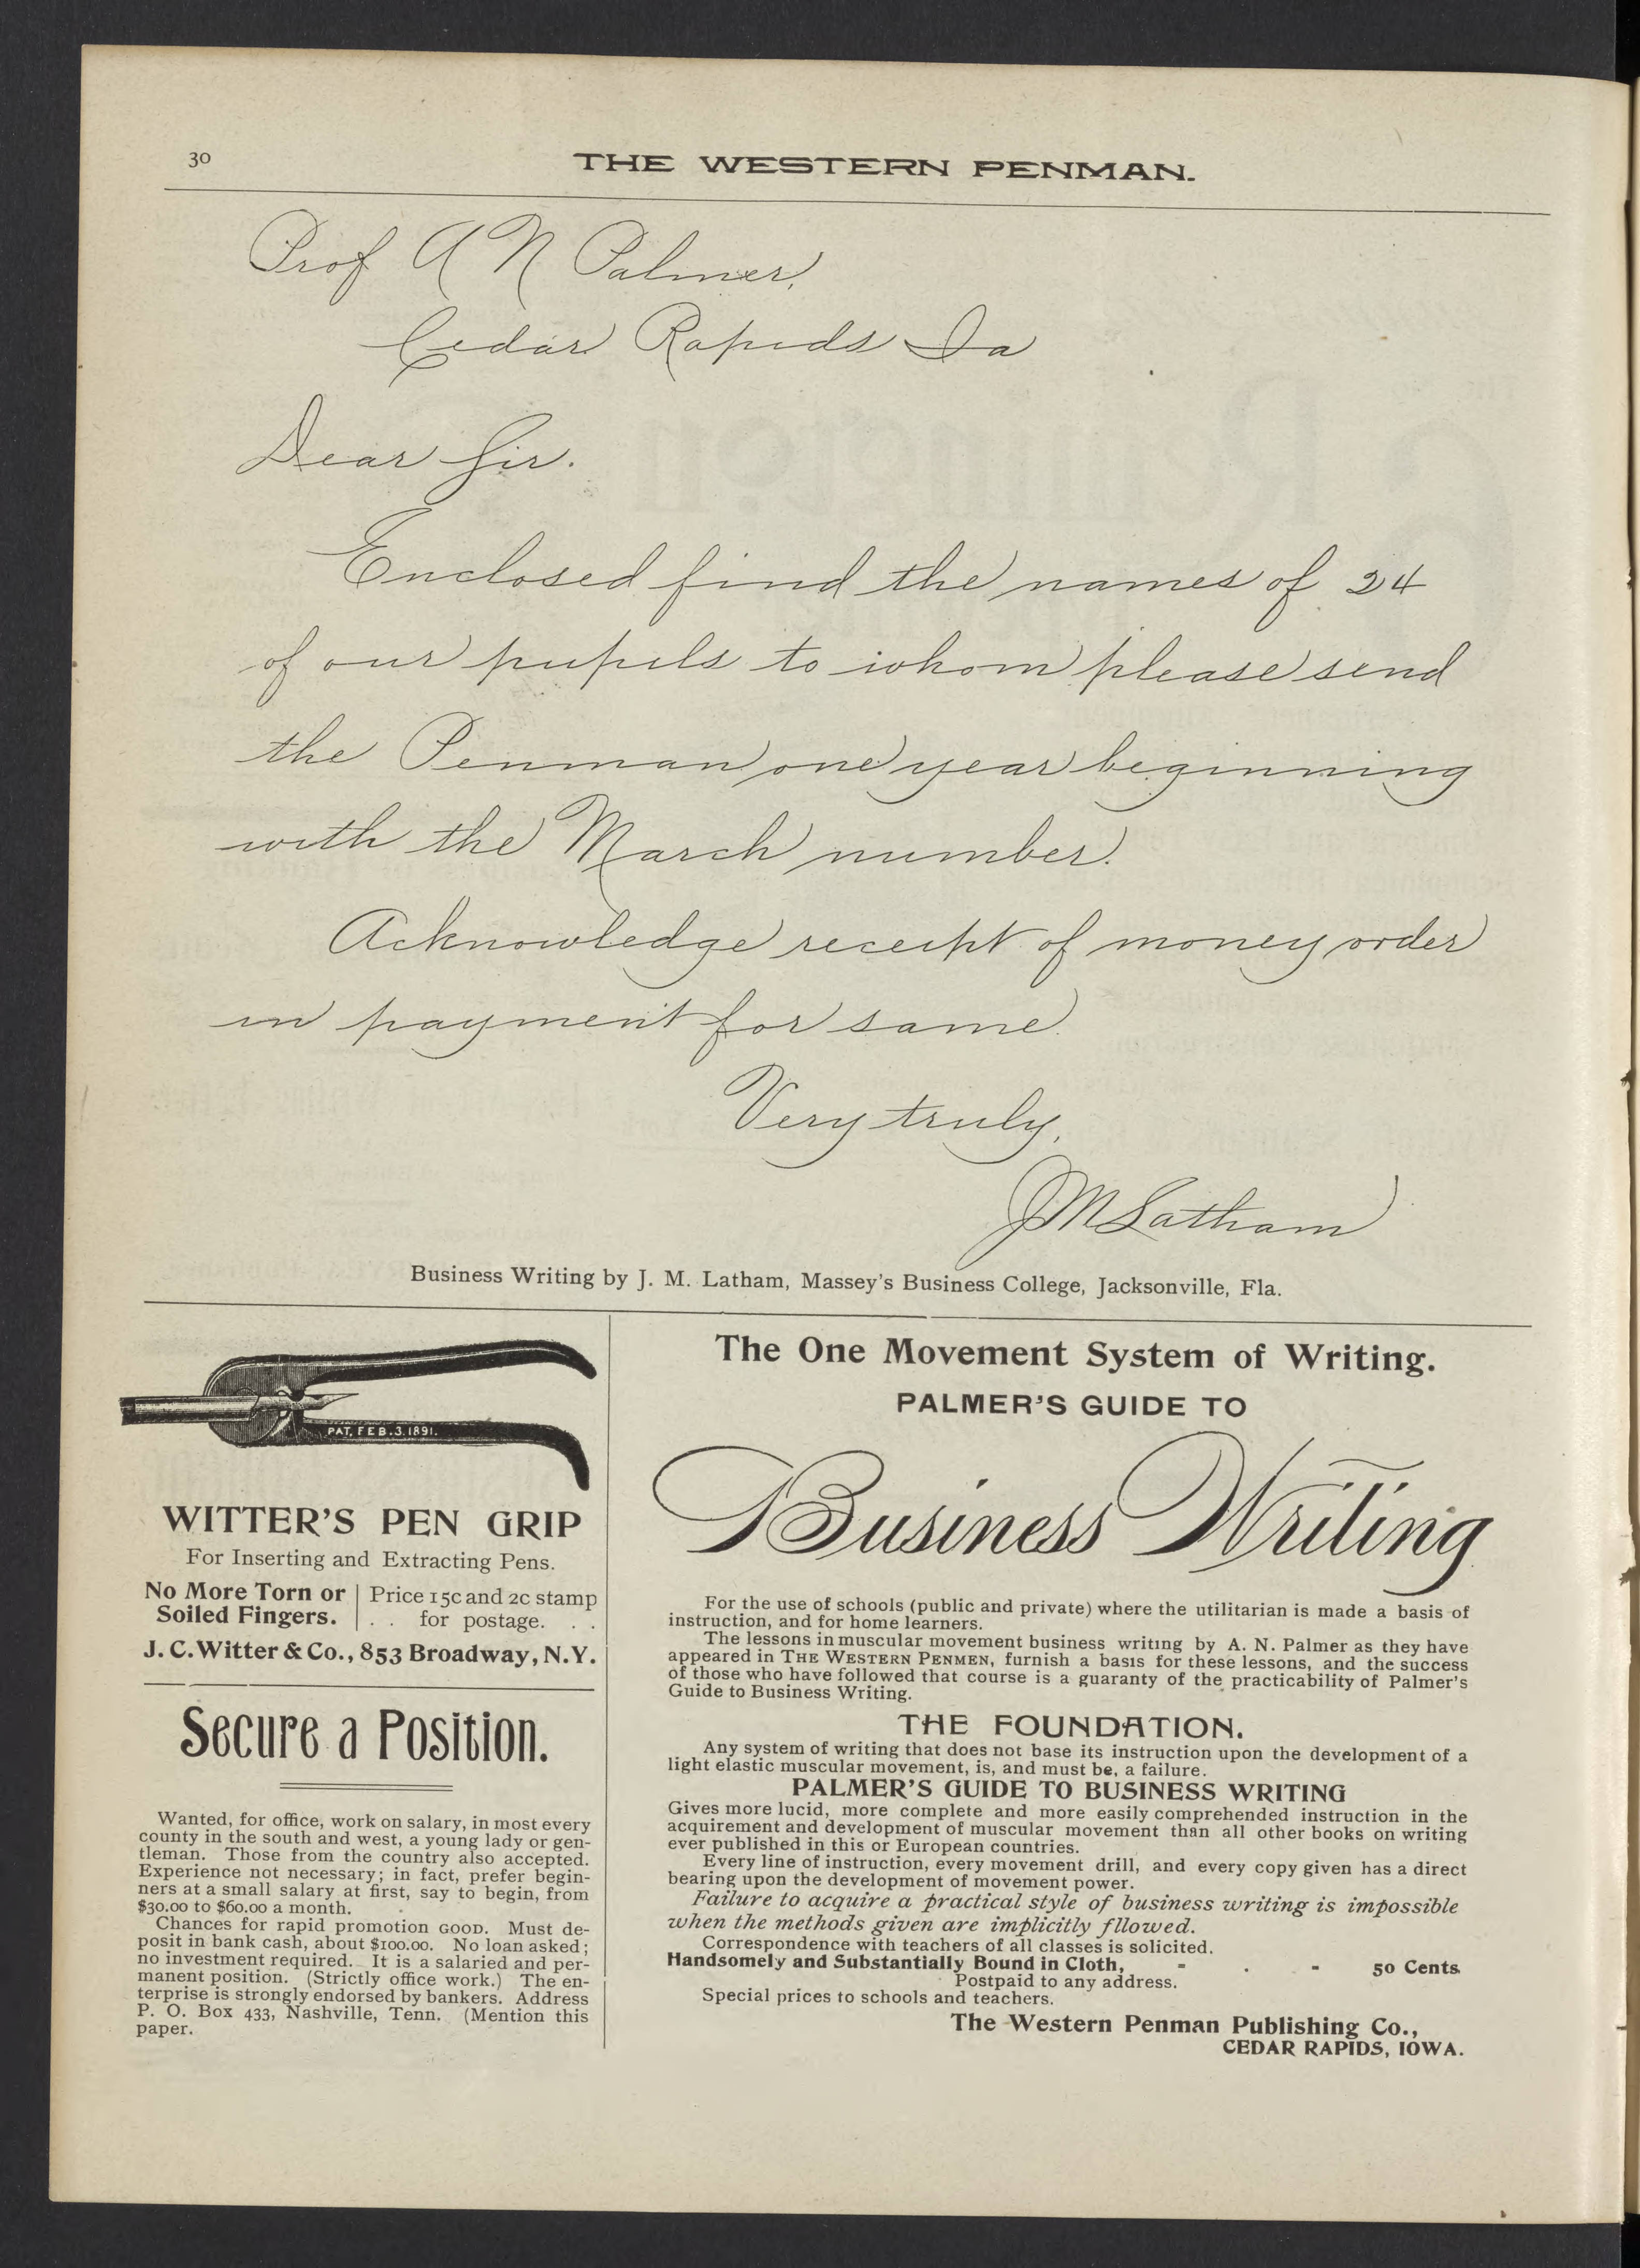 30
THE WESTERN PENMAN.
Prof A N Palmer,
Cedar Rapids Ia
Dear Sir.
Enclosed find the names of 24
of our pupils to whom please send
the Penman one year beginning
with the March number.
Acknowledge receipt of money order
in payment for same.
Very truly,
J M Latham
Business Writing by J. M. Latham, Massey's Business College, Jacksonville, Fla.
PAT, FEB. 3. 1891.
WITTER'S PEN GRIP
For Inserting and Extracting Pens.
No More Torn or
Soiled Fingers.
Price 15c and 2c stamp
. . for postage. . .
J. C. Witter & Co., 853 Broadway, N.Y.
Secure a Position.
Wanted, for office, work on salary, in most every
county in the south and west, a young lady or gen-
tleman. Those from the country also accepted.
Experience not necessary; in fact, prefer begin-
ners at a small salary at first, say to begin, from
$30.00 to $60.00 a month.
Chances for rapid promotion GOOD. Must de-
posit in bank cash, about $100.00. No loan asked;
no investment required. It is a salaried and per-
manent position. (Strictly office work.) The en-
terprise is strongly endorsed by bankers. Address
P. O. Box 433, Nashville, Tenn. (Mention this
paper.
The One Movement System of Writing.
PALMER'S GUIDE TO
Business Writing
For the use of schools (public and private) where the utilitarian is made a basis of
instruction, and for home learners.
The lessons in muscular movement business writing by A. N. Palmer as they have
appeared in THE WESTERN PENMEN, furnish a basis for these lessons, and the success
of those who have followed that course is a guaranty of the practicability of Palmer's
Guide to Business Writing.
THE FOUNDATION.
Any system of writing that does not base its instruction upon the development of a
light elastic muscular movement, is, and must be, a failure.
PALMER'S GUIDE TO BUSINESS WRITING
Gives more lucid, more complete and more easily comprehended instruction in the
acquirement and development of muscular movement than all other books on writing
ever published in this or European countries.
Every line of instruction, every movement drill, and every copy given has a direct
bearing upon the development of movement power.
Failure to acquire a practical style of business writing is impossible
when the methods given are implicitly fllowed.
Correspondence with teachers of all classes is solicited.
Handsomely and Substantially Bound in Cloth, - . - 50 Cents
Postpaid to any address.
Special prices to schools and teachers.
The Western Penman Publishing Co.,
CEDAR RAPIDS, IOWA.